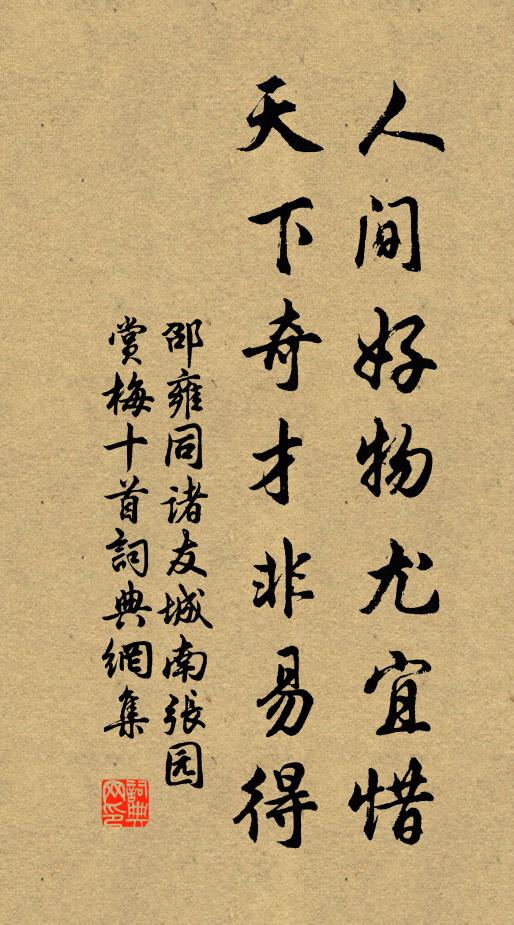 人间好物尤宜惜
天下奇才非易得
邵雍同诸友城南张园
赏梅十首詞典網集
詞典网印